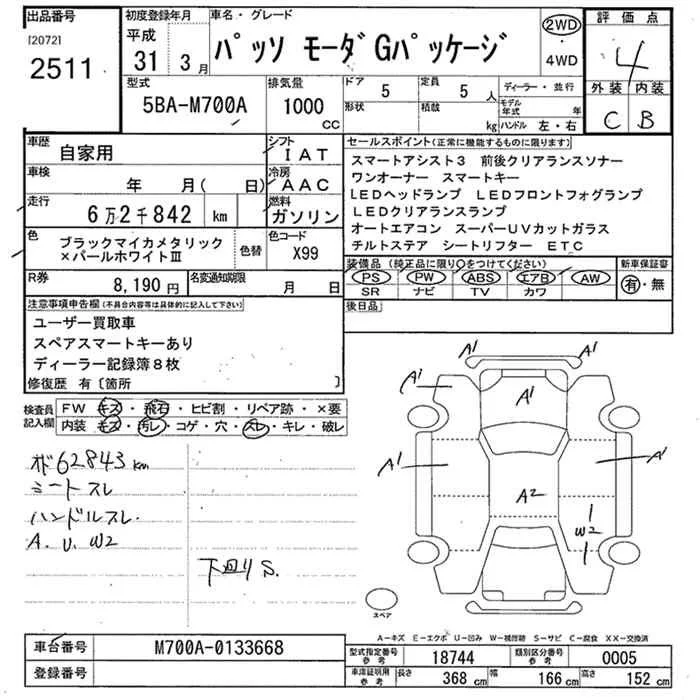 出品番号
[2072]
2511
初度登録年月
平成
31 3月
車名・グレード
パッソ モーダGパッケージ
2WD
・
4WD
評価点
4
外装 内装
C B
型式
5BA-M700A
排気量
1000
cc
ドア
5
形状
定員
5人
積載
kg
ディーラー・並行
モデル
年式 年
ハンドル 左・右
車歴
自家用
シフト
IAT
車検
年 月( 日)
冷房
AAC
走行
6万2千842 km
燃料
ガソリン
色
ブラックマイカメタリック
×パールホワイトⅢ
色替
色コード
X99
R券
8,190円
名変通知期限
月 日
セールスポイント(正常に機能するものに限ります)
スマートアシスト3 前後クリアランスソナー
ワンオーナー スマートキー
LEDヘッドランプ LEDフロントフォグランプ
LEDクリアランスランプ
オートエアコン スーパーUVカットガラス
チルトステア シートリフター ETC
装備品(純正品に限り○をつけてください)
PS PW ABS エアB AW
SR ナビ TV カワ
新車保証書
有・無
後日品
注意事項申告欄(不具合内容等は具体的に記入して下さい)
ユーザー買取車
スペアスマートキーあり
ディーラー記録簿8枚
修復歴 有〔箇所 〕
検査員
記入欄
FW キズ・飛石・ヒビ割・リペア跡・×要
内装 キズ・汚レ・コゲ・穴・スレ・キレ・破レ
オド62843km
シートスレ
ハンドルスレ
A. U. W2
下回りS.
A1 A1
A1 A1
A1 A1
A2
W2
スペア
A-キズ E-エクボ U-凹み W-補修跡 S-サビ C-腐食 XX-交換済
車台番号
M700A-0133668
登録番号
型式指定番号
参考
18744
類別区分番号
参考
0005
車庫証明用
参考
長さ
368 cm
幅
166 cm
高さ
152 cm